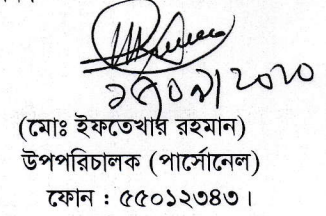 (মোঃ ইফতেখার রহমান)
উপপরিচালক (পার্সোনেল)
ফোন : ৫৫০১২৩৪৩।